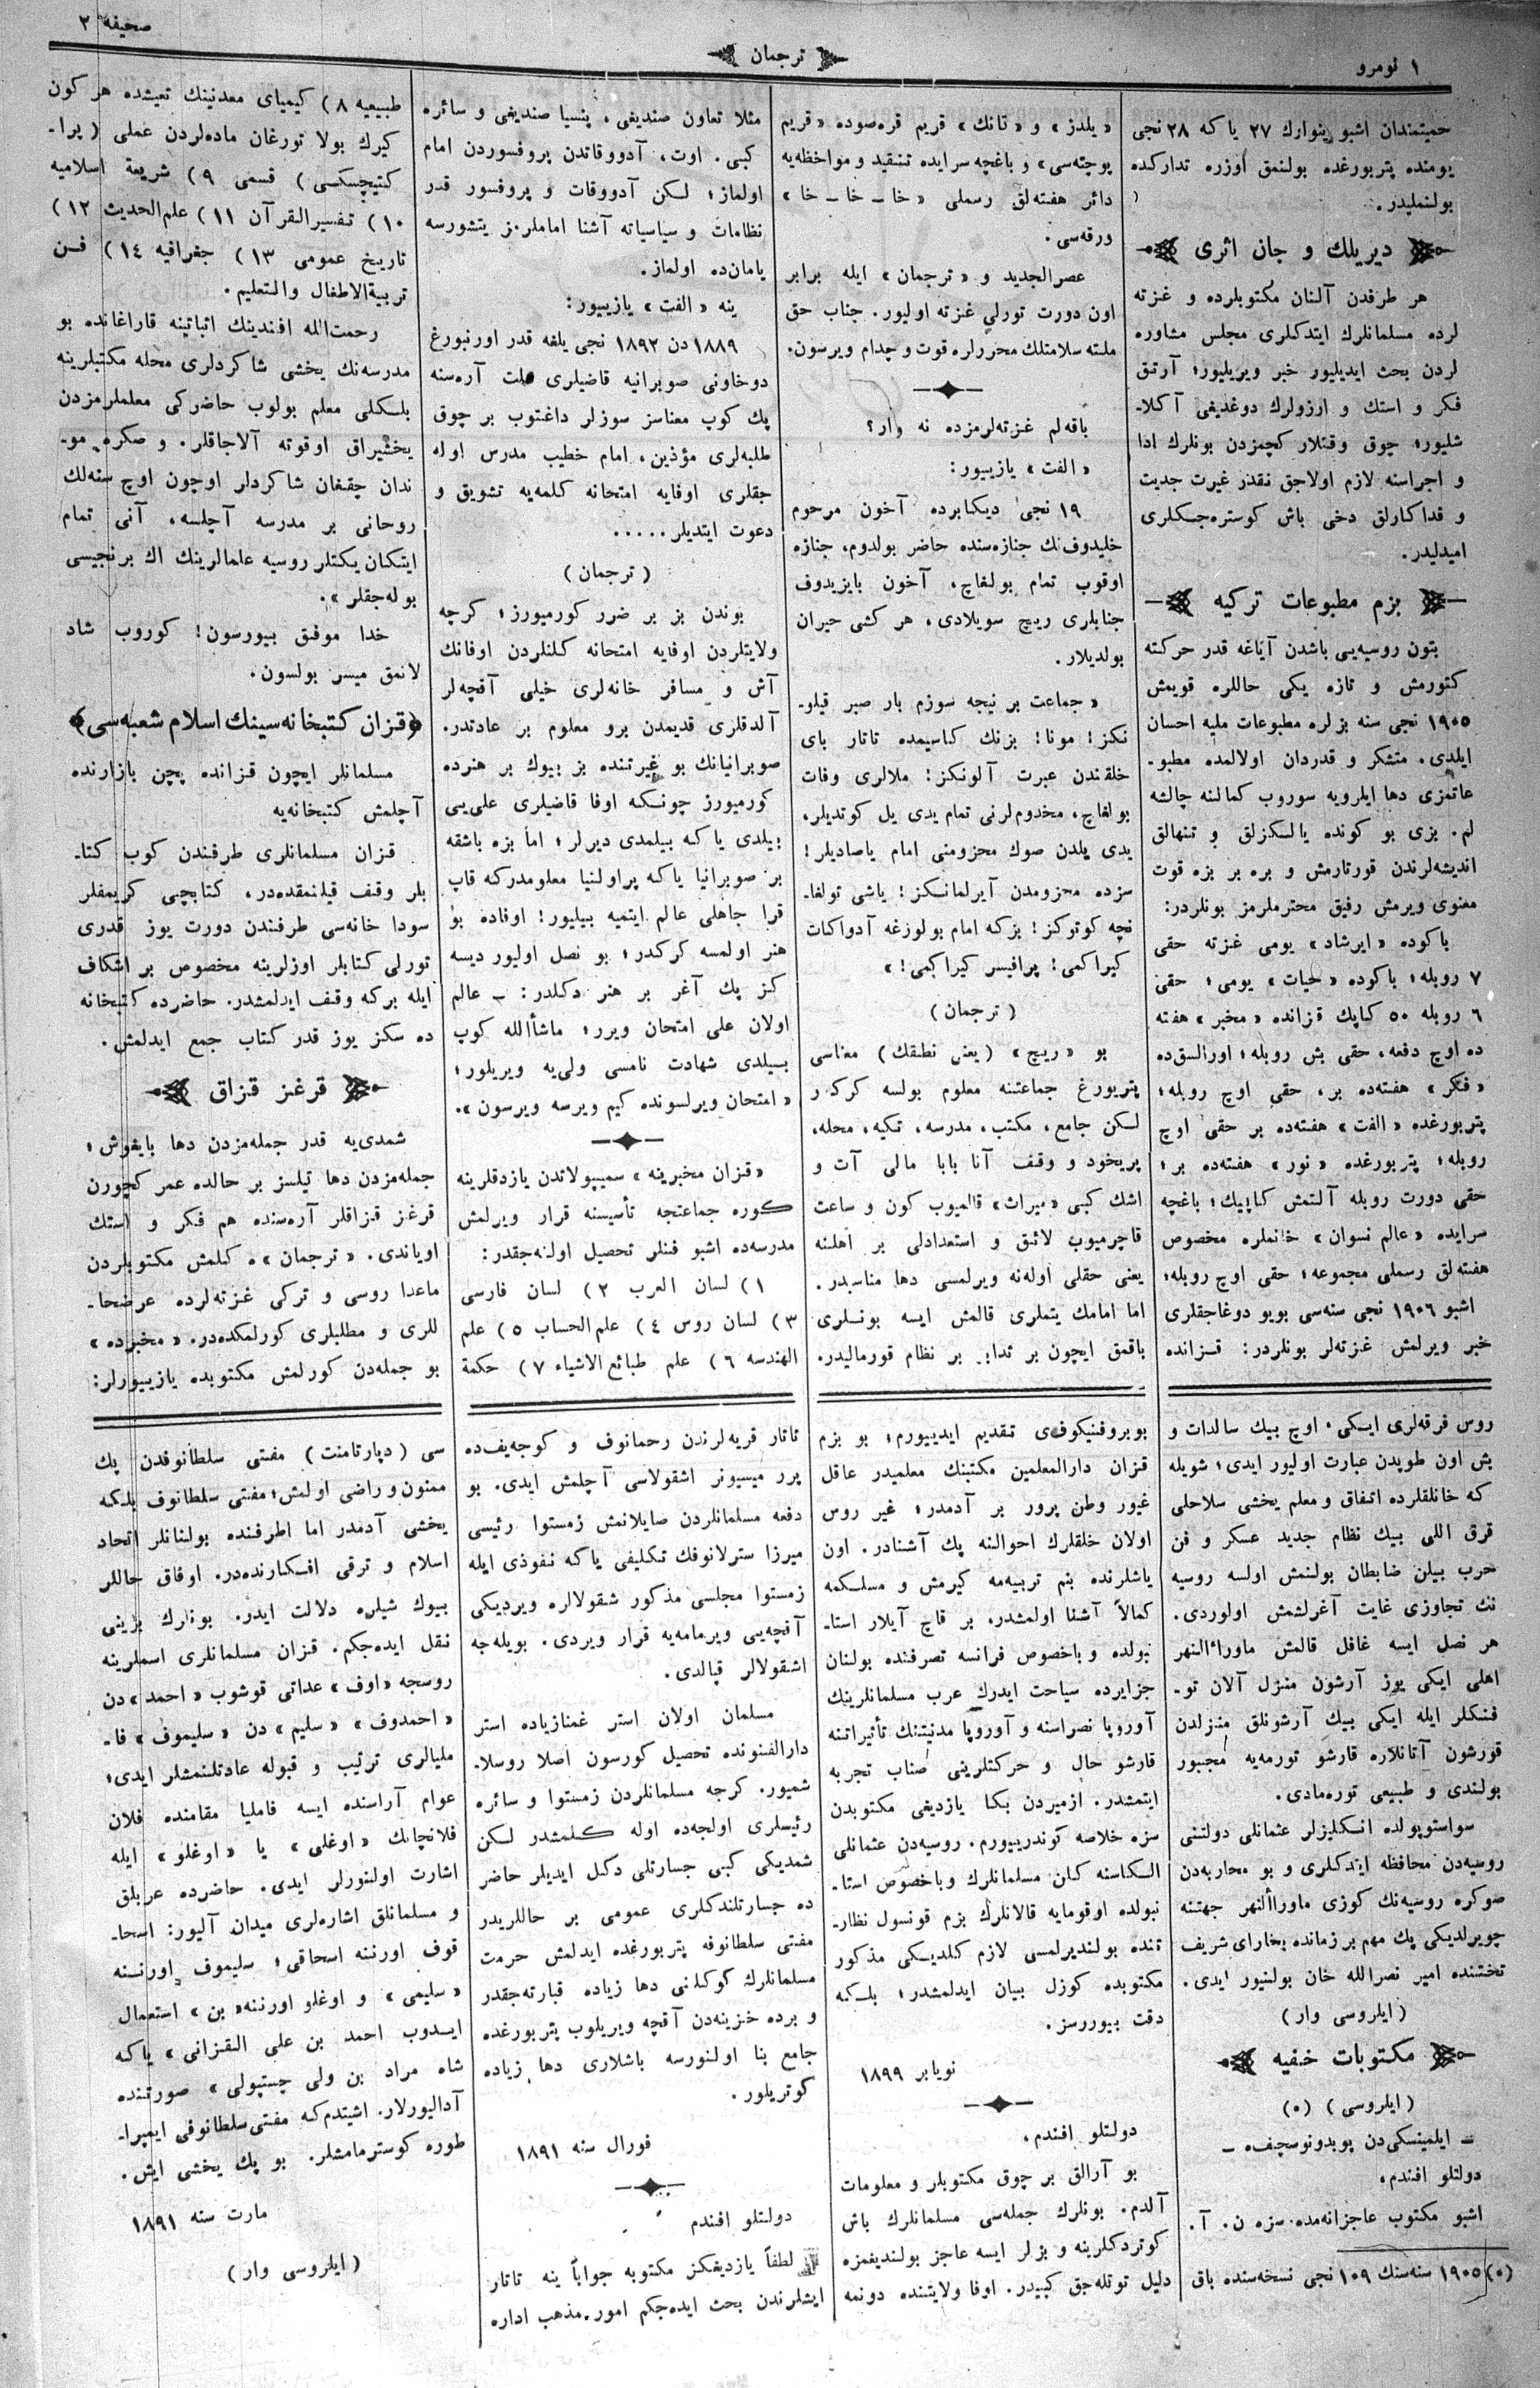 ١ نومرو
ترجمان
صحيفه ٢
حميتمندان اشبو ينوارك ٢٧ ياكه ٢٨ نجى
يومنده پتربورغده بولنمق اوزره تداركده
بولنمليدر.
ديريلك و جان اثرى
هر طرفدن آلنان مكتوبلرده و غزته
لرده مسلمانلرك ايتدكلرى مجلس مشاوره
لردن بحث ايديليور خبر ويريليور؛ آرتق
فكر و استك و ارزولرك دوغديغى آكلا-
شليور؛ چوق وقتلار كچمزدن بونلرك ادا
و اجراسنه لازم اولاجق نقدر غيرت جديت
و فداكارلق دخى باش كوسترەجكلرى
اميدليدر.
بزم مطبوعات تركيه
بتون روسيەيى باشدن آياغه قدر حركته
كتورمش و تازه يكى حاللره قويمش
١٩٠٥ نجى سنه بزلره مطبوعات مليه احسان
ايلدى. متشكر و قدردان اولالمده مطبو-
عاتمزى دها ايلرويه سوروب كمالنه چالشه
لم. بزى بو كونده يالكزلق و تنهالق
انديشەلرندن قورتارمش و بره بر بزه قوت
معنوى ويرمش رفيق محترملرمز بونلردر:
باكوده «ايرشاد» يومى غزته حقى
٧ روبله؛ باكوده «حيات» يومى؛ حقى
٦ روبله ٥٠ كاپك قزانده «مخبر» هفته
ده اوچ دفعه، حقى بش روبله؛ اورالسقده
«فكر» هفتەده بر، حقى اوچ روبله؛
پتربورغده «الفت» هفتەده بر حقى اوچ
روبله؛ پتربورغده «نور» هفتەده بر؛
حقى دورت روبله آلتمش كاپيك؛ باغچه
سرايده «عالم نسوان» خانملره مخصوص
هفتەلق رسملى مجموعه؛ حقى اوچ روبله؛
اشبو ١٩٠٦ نجى سنەسى بويو دوغاجقلرى
خبر ويرلمش غزتەلر بونلردر: قزانده
«يلدز» و «تانك» قريم قرەصوده «قريم
يوجتەسى» و باغچه سرايده تنقيد و مواخظەيه
دائر هفتەلق رسملى «خا - خا - خا»
ورقەسى.
عصرالجديد و «ترجمان» ايله برابر
اون دورت تورلى غزته اوليور. جناب حق
ملته سلامتلك محررلره قوت و چدام ويرسون.
باقەلم غزتەلرمزده نه وار؟
«الفت» يازييور:
١٩ نجى ديكابرده آخون مرحوم
خليدوفنك جنازەسنده حاضر بولدوم، جنازه
اوقوب تمام بولغاچ، آخون بايزيدوف
جنابلرى ريچ سويلادى، هر كشى حيران
بولديلار.
«جماعت بر نيچه سوزم بار صبر قيلو-
نكز! مونا! بزنك كاسيمده تاتار باى
خلقندن عبرت آلونكز! ملالرى وفات
بولغاچ، مخدوملرنى تمام يدى يل كوتديلر،
يدى يلدن صوك محزومنى امام ياصاديلر!
سزده محزومدن آيرلمانكز! ياشى تولغا-
نچه كوتركز! بزكه امام بولوزغه آدواكات
كيراكمى! پرافيسر كيراكمى! »
(ترجمان)
بو «ريچ» (يعنى نطقك) معناسى
پتربورغ جماعتنه معلوم بولسه كرك ر
لكن جامع، مكتب، مدرسه، تكيه، محله،
پريخود و وقف آنا بابا مالى آت و
اشك كبى «ميراث» قالميوب كون و ساعت
قاچرميوب لائق و استعدادلى بر اهلنه
يعنى حقلى اولەنه ويرلمسى دها مناسبدر.
اما امامك يتملرى قالمش ايسه بونلرى
باقمق ايچون بر تدا... بر نظام قورماليدر.
مثلا تعاون صنديغى، پنسيا صنديغى و سائره
كبى. اوت، آدووقاتدن پروفسوردن امام
اولماز؛ لكن آدووقات و پروفسور قدر
نظامات و سياسياته آشنا اماملرمز يتشورسه
يامانده اولماز.
ينه «الفت» يازييور:
١٨٨٩دن ١٨٩٢ نجى يلغه قدر اورنبورغ
دوخاونى صوبرانيه قاضيلرى ملت آرەسنه
پك كوپ معناسز سوزلر داغتوب بر چوق
طلبەلرى مؤذين، امام خطيب مدرس اوله
جقلرى اوفايه امتحانه كلمەيه تشويق و
دعوت ايتديلر.....
(ترجمان)
بوندن بز بر ضرر كورميورز؛ كرچه
ولايتلردن اوفايه امتحانه كلنلردن اوفانك
آش و مسافر خانەلرى خيلى آقچەلر
آلدقلرى قديمدن برو معلوم بر عادتدر.
صوبرانيانك بو غيرتنده بز بيوك بر هنرده
كورميورز چونكه اوفا قاضيلرى علىيى
بيلدى ياكه بيلمدى ديرلر؛ اما بزه باشقه
بر صوبرانيا ياكه پراولنيا معلومدركه قاپ
قرا جاهلى عالم ايتميه بيليور! اوفاده بو
هنر اولمسه كركدر؛ بو نصل اوليور ديسه
كز پك آغر بر هنر دكلدر: - عالم
اولان على امتحان ويرر؛ ماشأالله كوپ
بيلدى شهادت نامسى ولىيه ويريلور؛
«امتحان ويرلسونده كيم ويرسه ويرسون».
«قزان مخبرينه» سميپولاتدن يازدقلرينه
كوره جماعتجه تأسيسنه قرار ويرلمش
مدرسەده اشبو فنلر تحصيل اولنەجقدر:
١) لسان العرب ٢) لسان فارسى
٣) لسان روس ٤) علم الحساب ٥) علم
الهندسه ٦) علم طبائع الاشياء ٧) حكمة
طبيعيه ٨) كيمياى معدنينك تعيشده هر كون
كيرك بولا تورغان مادەلردن عملى (پرا-
كتيچسكى) قسمى ٩) شريعة اسلاميه
١٠) تفسيرالقرآن ١١) علم الحديث ١٢)
تاريخ عمومى ١٣) جغرافيه ١٤) فن
تربيةالاطفال والتعليم.
رحمت الله افندينك اثباتينه قاراغانده بو
مدرسەنك يخشى شاكردلرى محله مكتبلرينه
بلكلى معلم بولوب حاضركى معلملرمزدن
يخشيراق اوقوته آلاجاقلر. و صكره مو-
ندان چقغان شاكردلر اوچون اوچ سنەلك
روحانى بر مدرسه آچلسه، آنى تمام
ايتكان يكتلر روسيه علمالرينك اك برنجيسى
بولەجقلر».
خدا موفق بيورسون! كوروب شاد
لانمق ميسر بولسون.
﴿قزان كتبخانەسينك اسلام شعبەسى﴾
مسلمانلر ايچون قزانده پچن بازارنده
آچلمش كتبخانەيه
قزان مسلمانلرى طرفندن كوب كتا-
بلر وقف قيلنمقدەدر، كتابچى كريمفلر
سودا خانەسى طرفندن دورت يوز قدرى
تورلى كتابلر اوزلرينه مخصوص بر اشكاف
ايله بركه وقف ايدلمشدر. حاضرده كتبخانه
ده سكز يوز قدر كتاب جمع ايدلمش.
قرغز قزاق
شمدىيه قدر جملەمزدن دها بايغوش؛
جملەمزدن دها تيلسز بر حالده عمر كچورن
قرغز قزاقلر آرەسنده هم فكر و استك
اوياندى. «ترجمان»ه كلمش مكتوبلردن
ماعدا روسى و تركى غزتەلرده عرضحا-
للرى و مطلبلرى كورلمكدەدر. «مخبرده»
بو جملەدن كورلمش مكتوبده يازييورلر:
روس فرقەلرى ايكى، اوچ بيك سالدات و
بش اون طوپدن عبارت اوليور ايدى؛ شويله
كه خانلقلرده اتفاق و معلم يخشى سلاحلى
قرق اللى بيك نظام جديد عسكر و فن
حرب بيلن ضابطان بولنمش اولسه روسيه
نك تجاوزى غايت آغرلشمش اولوردى.
هر نصل ايسه غافل قالمش ماوراءالنهر
اهلى ايكى يوز آرشون منزل آلان تو-
فنكلر ايله ايكى بيك آرشونلق منزلدن
قورشون آتانلاره قارشو تورمەيه مجبور
بولندى و طبيعى تورەمادى.
سواستوپولده انكليزلر عثمانلى دولتنى
روسيەدن محافظه ايتدكلرى و بو محاربەدن
صوكره روسيەنك كوزى ماوراالنهر جهتنه
چويرلديكى پك مهم بر زمانده بخاراى شريف
تختنده امير نصرالله خان بولنيور ايدى.
(ايلروسى وار)
مكتوبات خفيه
(ايلروسى) (٥)
— ايلمينسكىدن پوبدونوسچيفه —
دولتلو افندم،
اشبو مكتوب عاجزانەمده سزه ن. آ.
(٥) ١٩٠٥ سنەسنك ١٠٩ نجى نسخەسنده باق
بوبروفنيكوفى تقديم ايدييورم؛ بو بزم
قزان دارالمعلمين مكتبنك معلميدر عاقل
غيور وطن پرور بر آدمدر؛ غير روس
اولان خلقلرك احوالنه پك آشنادر. اون
ياشلرنده بنم تربيەمه كيرمش و مسلكمه
كمالاً آشنا اولمشدر، بر قاچ آيلار استا-
نبولده و باخصوص فرانسه تصرفنده بولنان
جزايرده سياحت ايدرك عرب مسلمانلرينك
آوروپا نصراسنه و آوروپا مدنيتنك تأثيراتنه
قارشو حال و حركتلرينى صناب تجربه
ايتمشدر. ازميردن بكا يازديغى مكتوبدن
سزه خلاصه كوندرييورم. روسيەدن عثمانلى
الكاسنه كلان مسلمانلرك و باخصوص استا-
نبولده اوقومايه قالانلرك بزم قونسول نظار-
تنده بولنديرلمسى لازم كلديكى مذكور
مكتوبده كوزل بيان ايدلمشدر؛ بلكه
دقت بيوررسز.
نويابر ١٨٩٩
دولتلو افندم،
بو آرالق بر چوق مكتوبلر و معلومات
آلدم. بونلرك جملەسى مسلمانلرك باش
كوتردكلرينه و بزلر ايسه عاجز بولنديغمزه
دليل توتلەجق كبيدر. اوفا ولايتنده دونمه
تاتار قريەلرندن رحمانوف و كوجەيفده
پرر ميسيونر اشقولاسى آچلمش ايدى. بو
دفعه مسلمانلردن صايلانمش زمستوا رئيسى
ميرزا سترلانوفك تكليفى ياكه نفوذى ايله
زمستوا مجلسى مذكور شقولالره ويرديكى
آقچەيى ويرمامەيه قرار ويردى. بويلەجه
اشقولالر قپالدى.
مسلمان اولان استر غمنازياده استر
دارالفنونده تحصيل كورسون اصلا روسلا-
شميور. كرچه مسلمانلردن زمستوا و سائره
رئيسلرى اولجەده اوله كلمشدر لكن
شمديكى كبى جسارتلى دكل ايديلر حاضر
ده جسارتلندكلرى عمومى بر حاللريدر
مفتى سلطانوفه پتربورغده ايدلمش حرمت
مسلمانلرك كوكلنى دها زياده قبارتەجقدر
و برده خزينەدن آقچه ويريلوب پتربورغده
جامع بنا اولنورسه باشلارى دها زياده
كوتريلور.
فورال سنه ١٨٩١
دولتلو افندم
لطفاً يازديغكز مكتوبه جواباً ينه تاتار
ايشلرندن بحث ايدەجكم امور مذهب اداره
سى (دپارتامنت) مفتى سلطانوفدن پك
ممنون و راضى اولمش؛ مفتى سلطانوف بلكه
يخشى آدمدر اما اطرفنده بولنانلر اتحاد
اسلام و ترقى افكارندەدر. اوفاق حاللر
بيوك شيلره دلالت ايدر. بونلرك بزينى
نقل ايدەجكم. قزان مسلمانلرى اسملرينه
روسجه «اوف» عداتى قوشوب «احمد»دن
«احمدوف» «سليم» دن «سليموف» فا-
مليالرى ترتيب و قبوله عادتلنمشلر ايدى؛
عوام آراسنده ايسه فامليا مقامنده فلان
فلانچانك «اوغلى» يا «اوغلو» ايله
اشارت اولنورلر ايدى. حاضرده عربلق
و مسلمانلق اشارەلرى ميدان آليور: اسحا-
قوف اورننه اسحاقى؛ سليموف اورننه
«سليمى» و اوغلو اورننه «بن» استعمال
ايدوب احمد بن على القزانى» ياكه
شاه مراد بن ولى چستپولى» صورتنده
آداليورلار. اشيتدمكه مفتى سلطانوفى ايمپرا-
طوره كوسترمامشلر. بو پك يخشى ايش.
مارت سنه ١٨٩١
(ايلروسى وار)